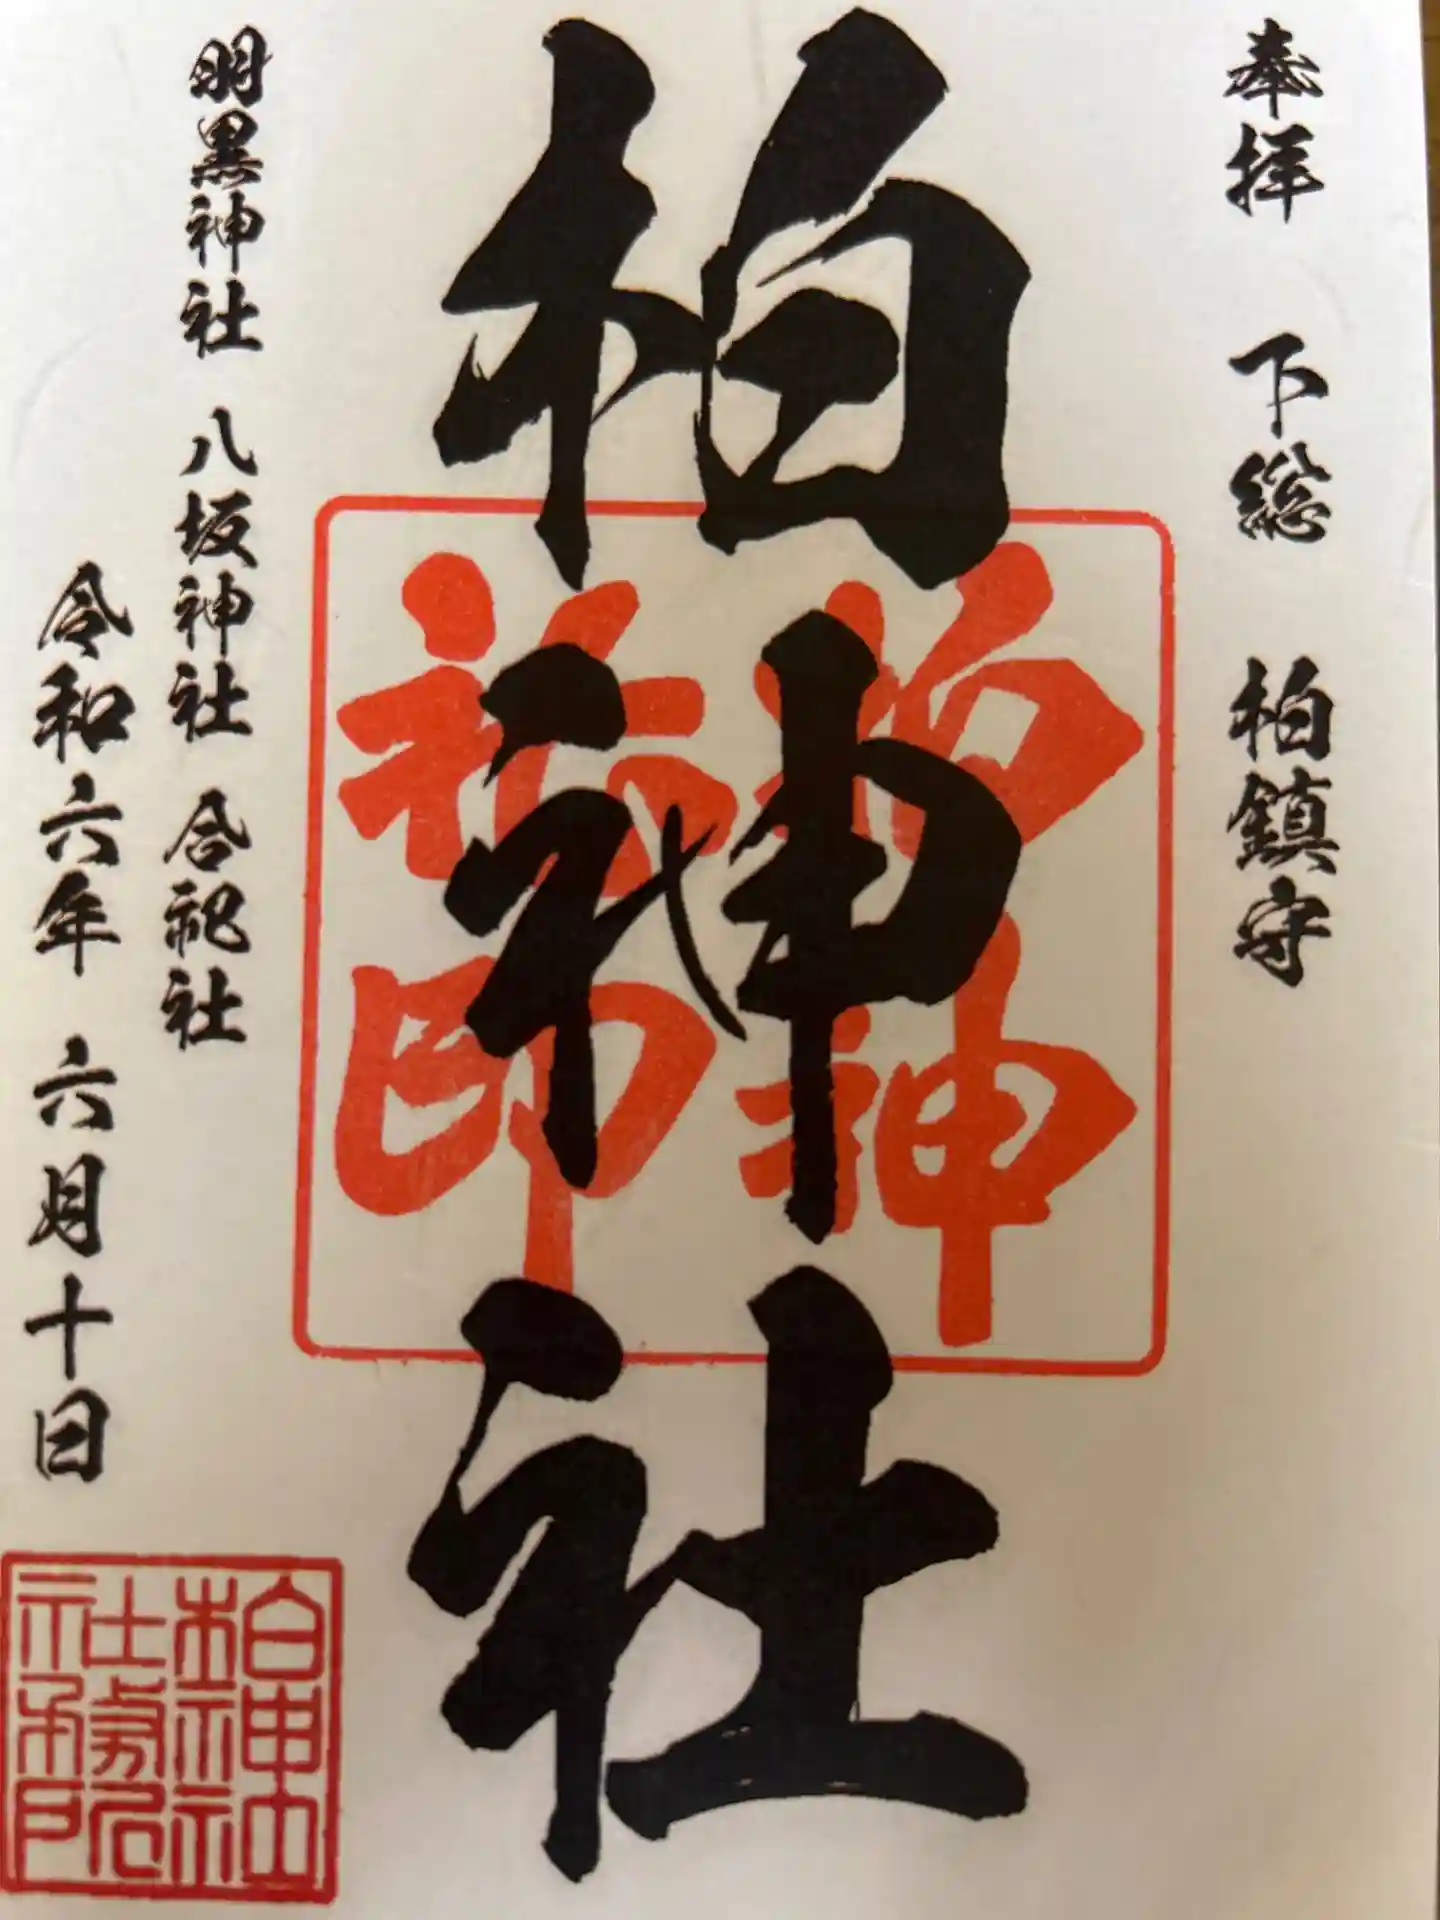 奉拝 下総 柏鎮守
柏神社
柏神
社印
明黒神社 八坂神社 合祀社
令和六年 六月十日
柏神社
社務所